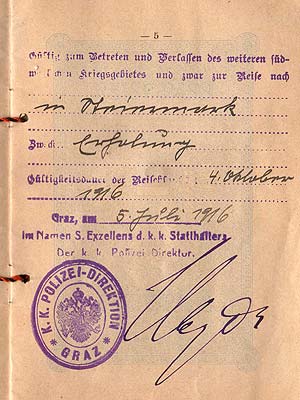 — 5 —
Gültig zum Betreten und Verlassen des weiteren süd-
Kriegsgebietes und zwar zur Reise nach
in Steiermark
Zweck: Erholung
Gültigkeitsdauer der 4. Oktober
1916
Graz, am 5. Juli 1916
Im Namen S. Exzellenz d. k. k. Statthalters
Der k. k. Polizei Direktor.
K. K. POLIZEI-DIREKTION
* GRAZ *